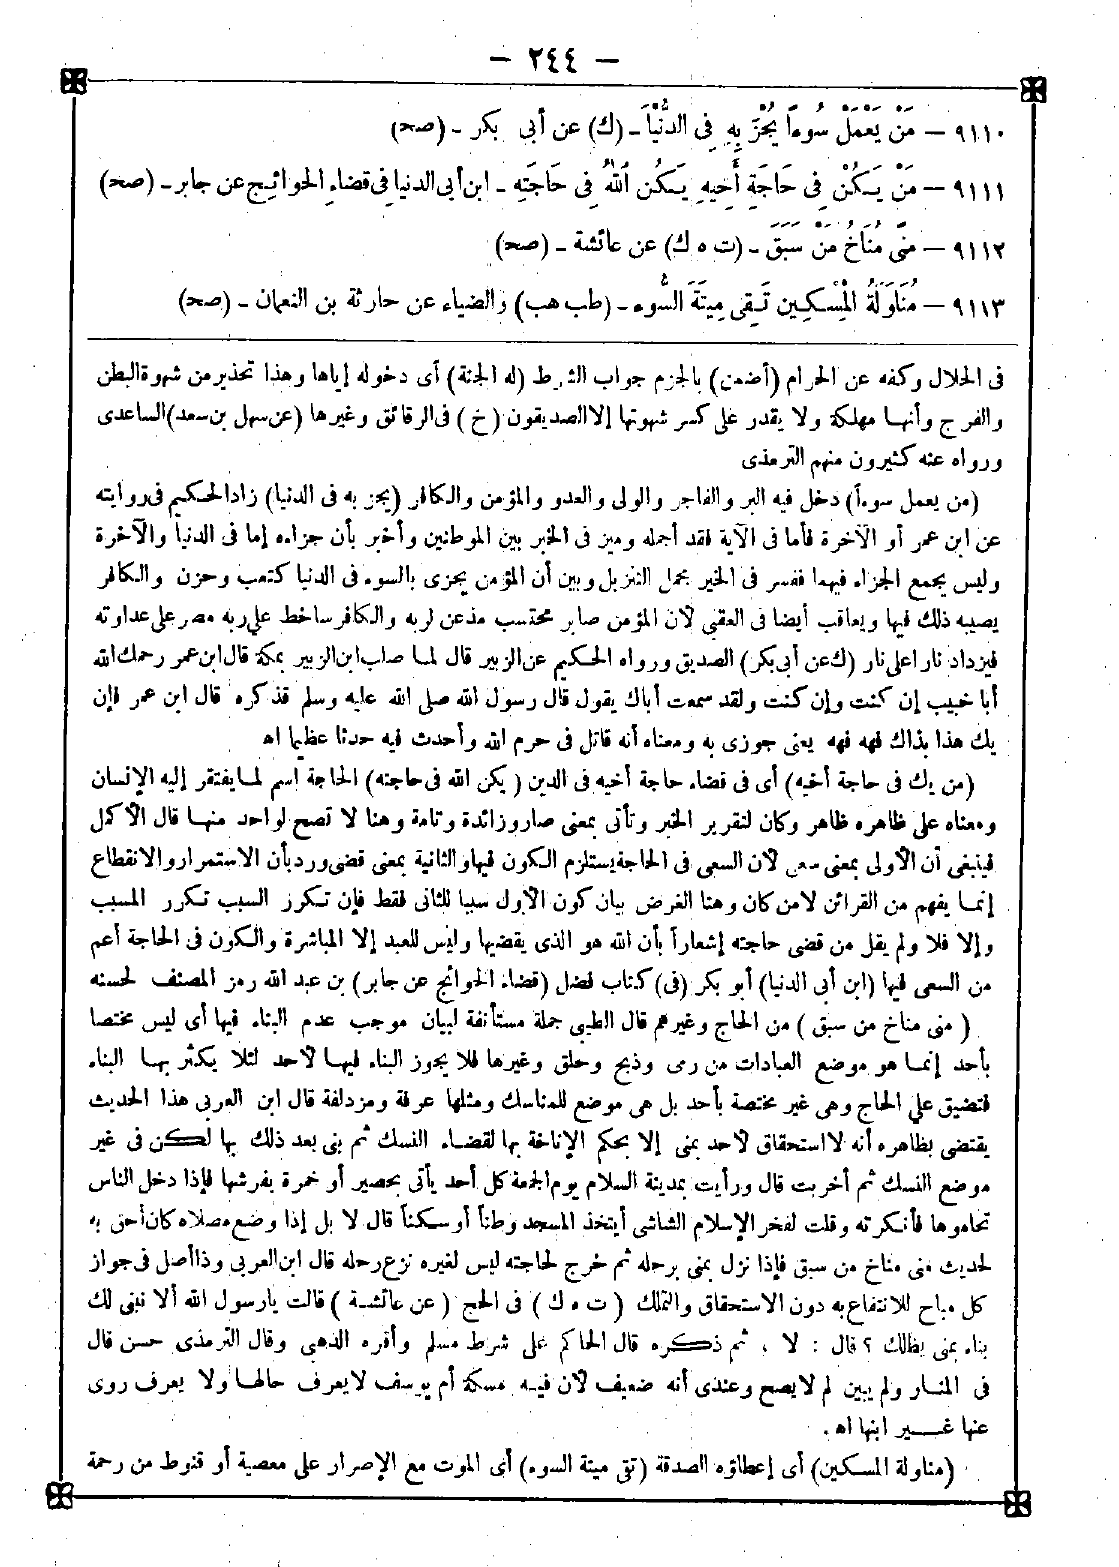 — ٢٤٤ —
٩١١٠ — مَنْ يَعْمَلْ سُوءاً يُجْزَ بِهِ فِى الدُّنْيَا - (ك) عن أبى بكر - (صح)
٩١١١ — مَنْ يَكُنْ فِى حَاجَةِ أَخِيهِ يَكُنِ اللهُ فِى حَاجَتِهِ - ابن أبى الدنيا فى قضاء الحوائج عن جابر - (صح)
٩١١٢ — مِنًى مُنَاخُ مَنْ سَبَقَ - (ت ه ك) عن عائشة - (صح)
٩١١٣ — مُنَاوَلَةُ الْمِسْكِينِ تَقِى مِيتَةَ السُّوءِ - (طب هب) والضياء عن حارثة بن النعمان - (صح)
فى الحلال وكفه عن الحرام (أضمن) بالجزم جواب الشرط (له الجنة) أى دخوله إياها وهذا تحذير من شهوة البطن
والفرج وأنها مهلكة ولا يقدر على كسر شهوتها إلا الصديقون (خ) فى الرقائق وغيرها (عن سهل بن سعد) الساعدى
ورواه عنه كثيرون منهم الترمذى
(من يعمل سوءاً) دخل فيه البر والفاجر والولى والعدو والمؤمن والكافر (يجز به فى الدنيا) زاد الحكيم فى روايته
عن ابن عمر أو الآخرة فأما فى الآية فقد أجمله وميز فى الخبر بين الموطنين وأخبر بأن جزاءه إما فى الدنيا والآخرة
وليس يجمع الجزاء فيهما ففسر فى الخبر مجمل التنزيل وبين أن المؤمن يجزى بالسوء فى الدنيا كتعب وحزن والكافر
يصيبه ذلك فيها ويعاقب أيضا فى العقبى لأن المؤمن صابر محتسب مذعن لربه والكافر ساخط على ربه مصر على عداوته
فيزداد نارا على نار (ك عن أبى بكر) الصديق ورواه الحكيم عن الزبير قال لما صلب ابن الزبير بمكة قال ابن عمر رحمك الله
أبا خبيب إن كنت وإن كنت ولقد سمعت أباك يقول قال رسول الله صلى الله عليه وسلم فذكره قال ابن عمر فإن
يك هذا بذاك فهه فهه يعنى جوزى به ومعناه أنه قاتل فى حرم الله وأحدث فيه حدثا عظيما اه
(من يك فى حاجة أخيه) أى فى قضاء حاجة أخيه فى الدين (يكن الله فى حاجته) الحاجة اسم لما يفتقر إليه الإنسان
ومعناه على ظاهره ظاهر وكان لتقرير الخبر وتأتى بمعنى صار وزائدة وتامة وهنا لا تصح لواحد منها قال الأكمل
فينبغى أن الأولى بمعنى سعى لأن السعى فى الحاجة يستلزم الكون فيها والثانية بمعنى قضى ورد بأن الاستمرار والانقطاع
إنما يفهم من القرائن لا من كان وهنا الغرض بيان كون الأول سببا للثانى فقط فإن تكرر السبب تكرر المسبب
وإلا فلا ولم يقل من قضى حاجته إشعاراً بأن الله هو الذى يقضيها وليس للعبد إلا المباشرة والكون فى الحاجة أعم
من السعى فيها (ابن أبى الدنيا) أبو بكر (فى) كتاب فضل (قضاء الحوائج عن جابر) بن عبد الله رمز المصنف لحسنه
(منى مناخ من سبق) من الحاج وغيرهم قال الطيبى جملة مستأنفة لبيان موجب عدم البناء فيها أى ليس مختصا
بأحد إنما هو موضع العبادات من رمى وذبح وحلق وغيرها فلا يجوز البناء فيها لأحد لئلا يكثر بها البناء
فتضيق على الحاج وهى غير مختصة بأحد بل هى موضع للمناسك ومثلها عرفة ومزدلفة قال ابن العربى هذا الحديث
يقتضى بظاهره أنه لا استحقاق لأحد بمنى إلا بحكم الإناخة بها لقضاء النسك ثم بنى بعد ذلك بها لكن فى غير
موضع النسك ثم أخربت قال ورأيت بمدينة السلام يوم الجمعة كل أحد يأتى بحصير أو خمرة يفرشها فإذا دخل الناس
تحاموها فأنكرته وقلت لفخر الإسلام الشاشى أيتخذ المسجد وطناً أو سكناً قال لا بل إذا وضع مصلاه كان أحق به
لحديث منى مناخ من سبق فإذا نزل بمنى برحله ثم خرج لحاجته ليس لغيره نزع رحله قال ابن العربى وذا أصل فى جواز
كل مباح للانتفاع به دون الاستحقاق والتملك (ت ه ك) فى الحج (عن عائشة) قالت يارسول الله ألا نبنى لك
بناء بمنى يظلك ؟ قال : لا ، ثم ذكره قال الحاكم على شرط مسلم وأقره الذهبى وقال الترمذى حسن قال
فى المنار ولم يبين لم لا يصح وعندى أنه ضعيف لأن فيه مسكة أم يوسف لا يعرف حالها ولا يعرف روى
عنها غير ابنها اه .
(مناولة المسكين) أى إعطاؤه الصدقة (تقى ميتة السوء) أى الموت مع الإصرار على معصية أو قنوط من رحمة